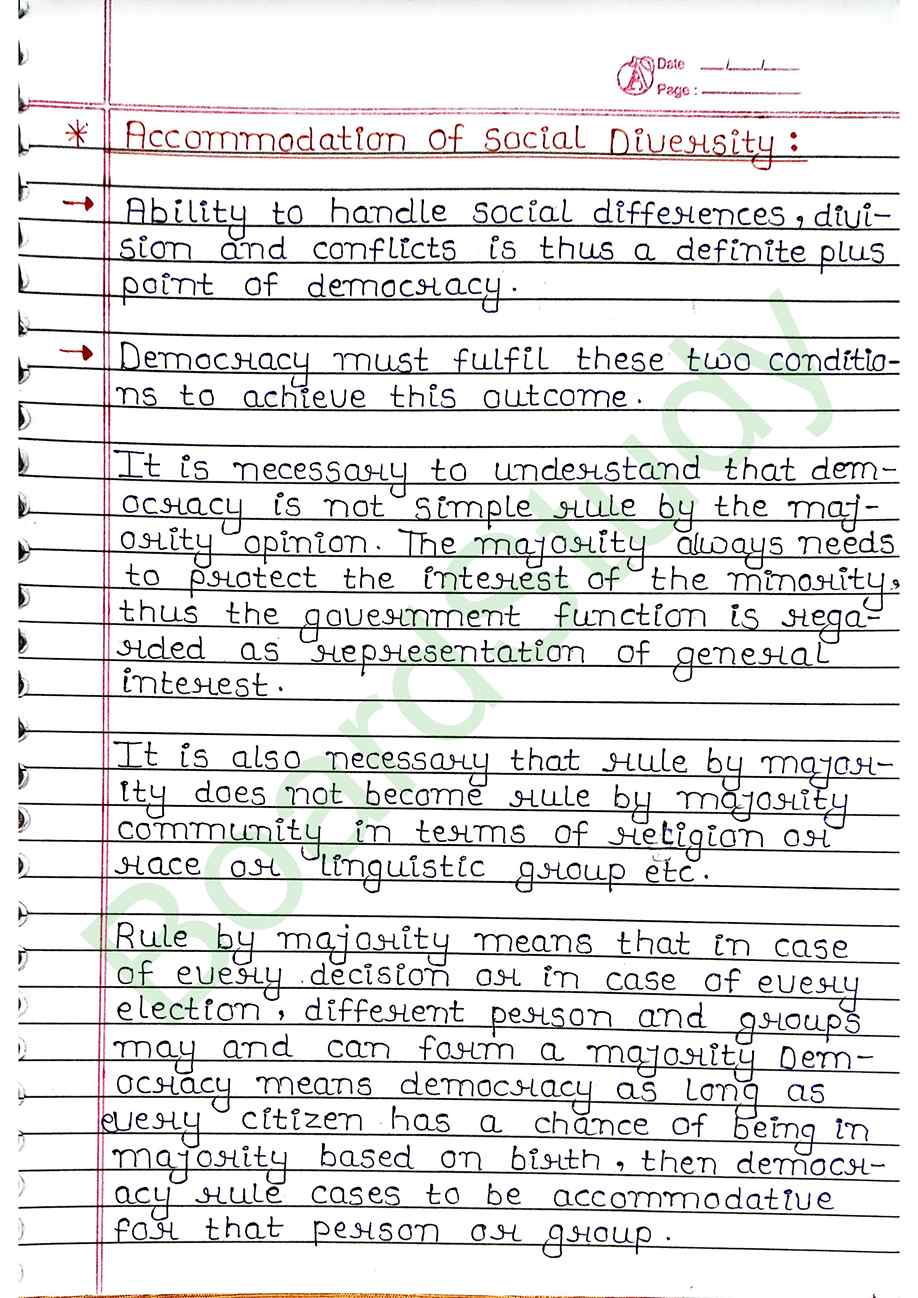 Date __/__/__
Page : ______
* Accommodation of Social Diversity :
→ Ability to handle social differences, divi-
sion and conflicts is thus a definite plus
point of democracy.
→ Democracy must fulfil these two conditio-
ns to achieve this outcome.
It is necessary to understand that dem-
ocracy is not simple rule by the maj-
ority opinion. The majority always needs
to protect the interest of the minority,
thus the government function is rega-
rded as representation of general
interest.
It is also necessary that rule by major-
ity does not become rule by majority
community in terms of religion or
race or linguistic group etc.
Rule by majority means that in case
of every decision or in case of every
election, different person and groups
may and can form a majority Dem-
ocracy means democracy as long as
every citizen has a chance of being in
majority based on birth, then democr-
acy rule cases to be accommodative
for that person or group.
BoardStudy